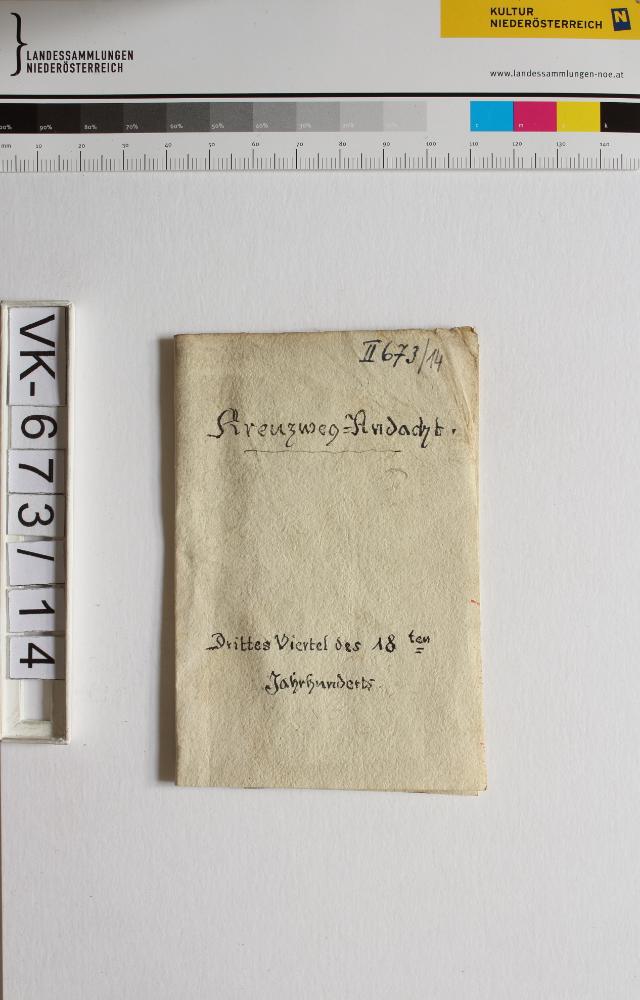 LANDESSAMMLUNGEN
NIEDERÖSTERREICH
KULTUR
NIEDERÖSTERREICH
N
www.landessammlungen-noe.at
90% 80% 70% 60% 50% 40% 30% 20% 10%
c m y k
mm 10 20 30 40 50 60 70 80 90 100 110 120 130 140
VK-673/14
II 673/14
Kreuzweg=Andacht.
Drittes Viertel des 18 ten
Jahrhunderts.